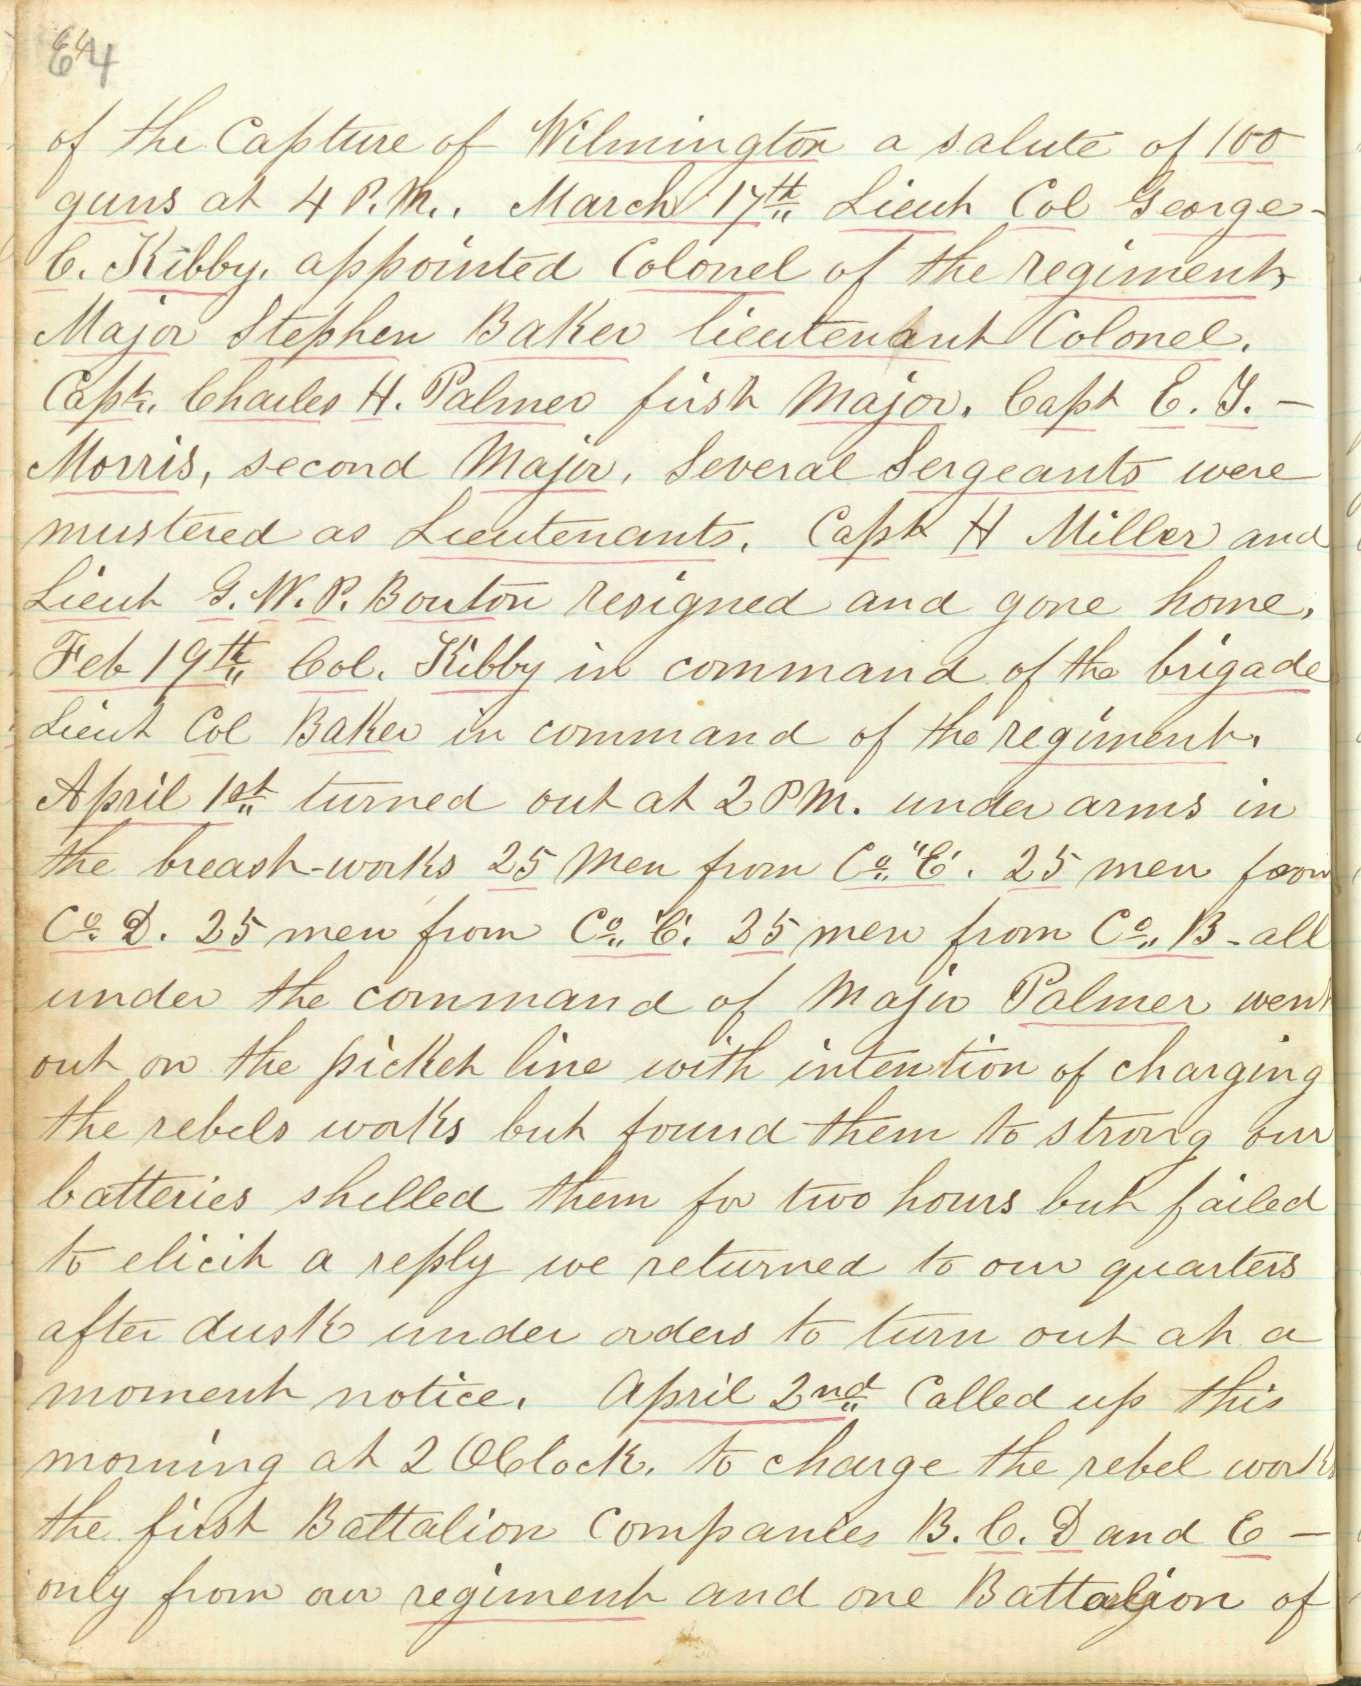 64
of the Capture of Wilmington a salute of 100
guns at 4 P.M.. March 17th Lieut Col George-
C. Kibby. appointed Colonel of the regiment,
Major Stephen Baker lieutenant Colonel.
Capt. Charles H. Palmer first Major. Capt E. J. -
Morris, second Major. Several Sergeants were
mustered as Lieutenants. Capt H Miller and
Lieut G. W. P. Bouton resigned and gone home.
Feb 19th Col. Kibby in command of the brigade
Lieut Col Baker in command of the regiment.
April 1st turned out at 2 PM. under arms in
the breast-works 25 Men from Co. "E". 25 men from
Co. D. 25 men from Co. "C". 25 men from Co. B - all
under the command of Major Palmer went
out on the picket line with intention of charging
the rebels works but found them to strong our
batteries shelled them for two hours but failed
to elicit a reply we returned to our quarters
after dusk under orders to turn out at a
moment notice. April 2nd Called up this
morning at 2 OClock. to charge the rebel works
the first Battalion Companies B. C. D and E -
only from our regiment and one Battalion of